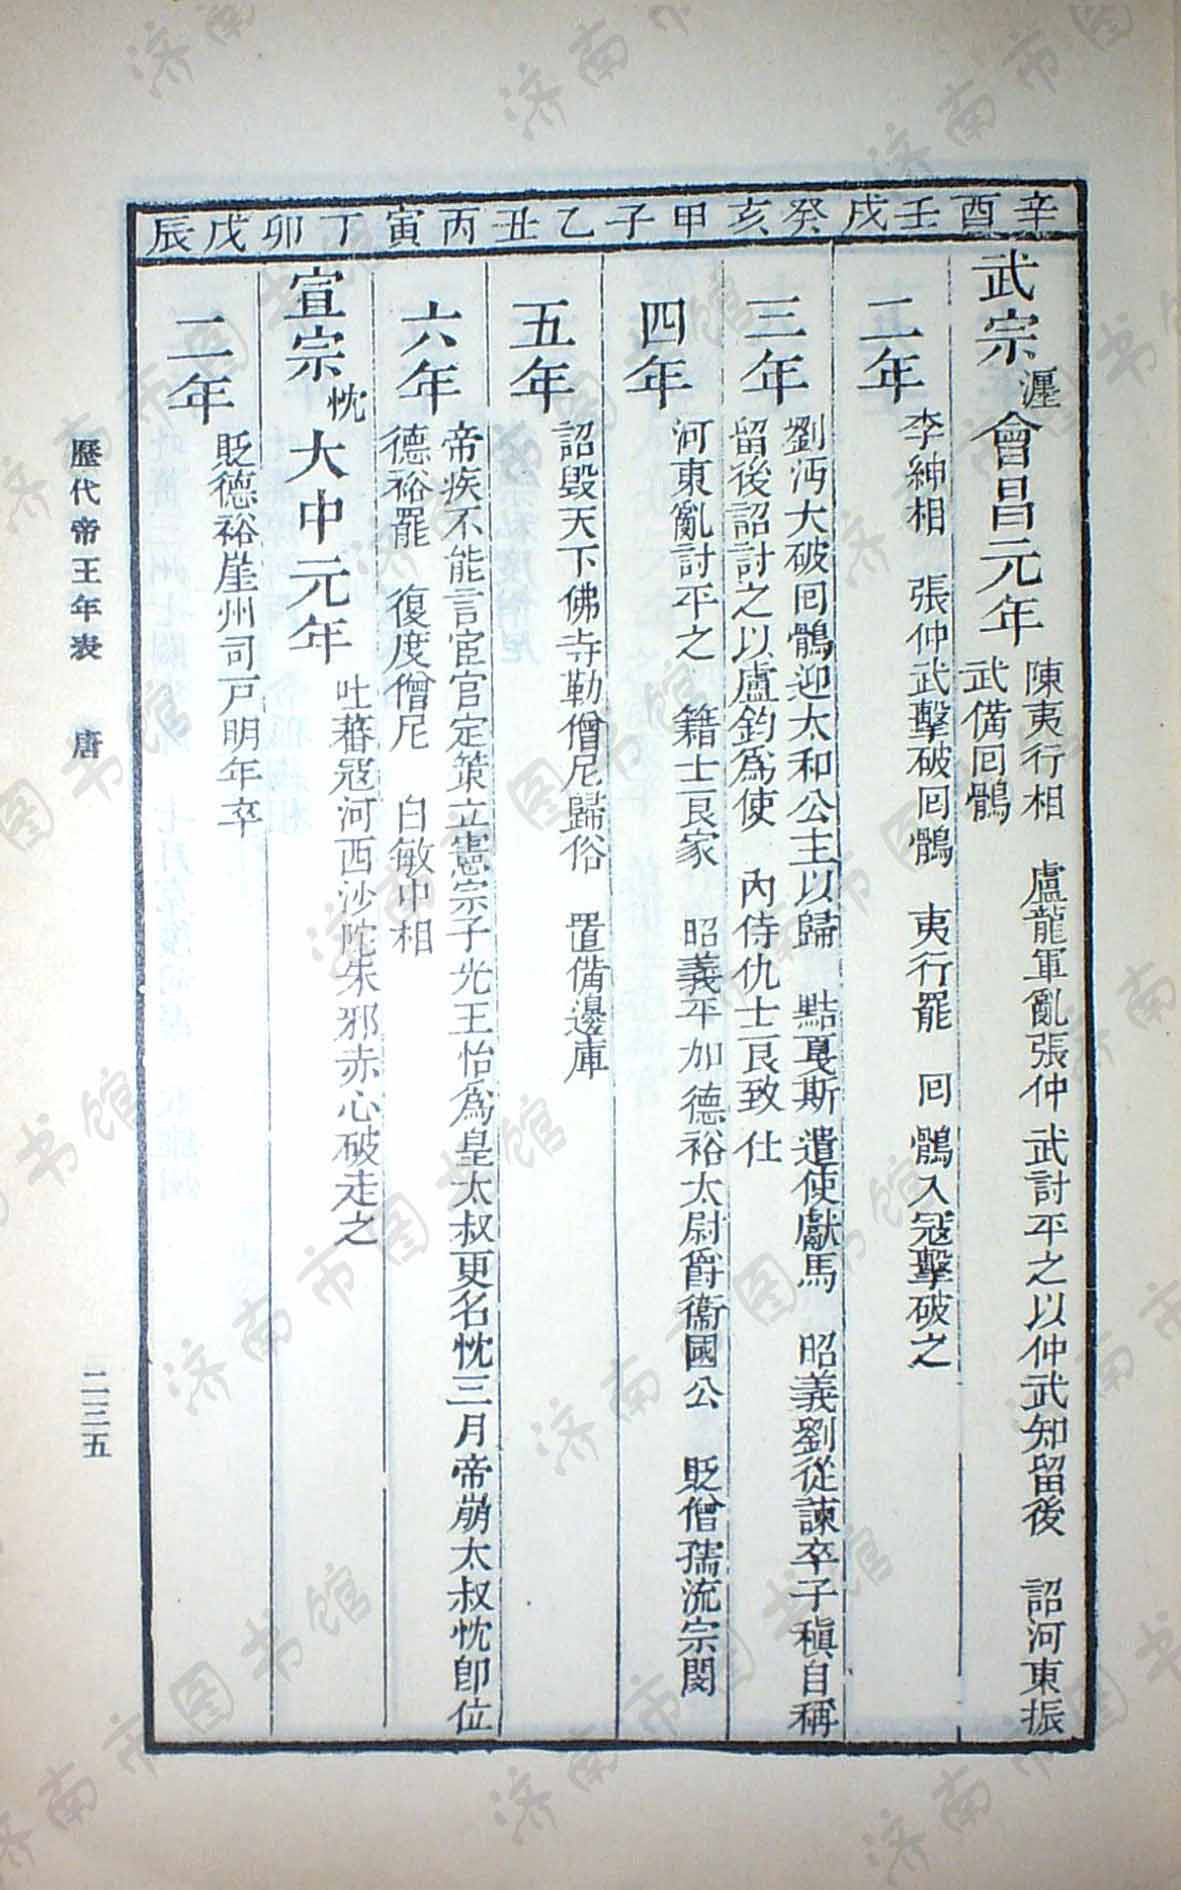 辛酉 壬戌 癸亥 甲子 乙丑 丙寅 丁卯 戊辰
武宗瀍會昌元年
陳夷行相　盧龍軍亂張仲武討平之以仲武知留後　詔河東振
武備回鶻
二年
李紳相　張仲武擊破回鶻　夷行罷　回鶻入寇擊破之
三年
劉沔大破回鶻迎太和公主以歸　黠戛斯遣使獻馬　昭義劉從諫卒子稹自稱
留後詔討之以盧鈞爲使　內侍仇士良致仕
四年
河東亂討平之　籍士良家　昭義平加德裕太尉爵衞國公　貶僧孺流宗閔
五年
詔毀天下佛寺勒僧尼歸俗　置備邊庫
六年
帝疾不能言宦官定策立憲宗子光王怡爲皇太叔更名忱三月帝崩太叔忱卽位
德裕罷　復度僧尼　白敏中相
宣宗忱大中元年
吐蕃寇河西沙陀朱邪赤心破走之
二年
貶德裕崖州司戶明年卒
歷代帝王年表　唐
二三五
济南市图书馆